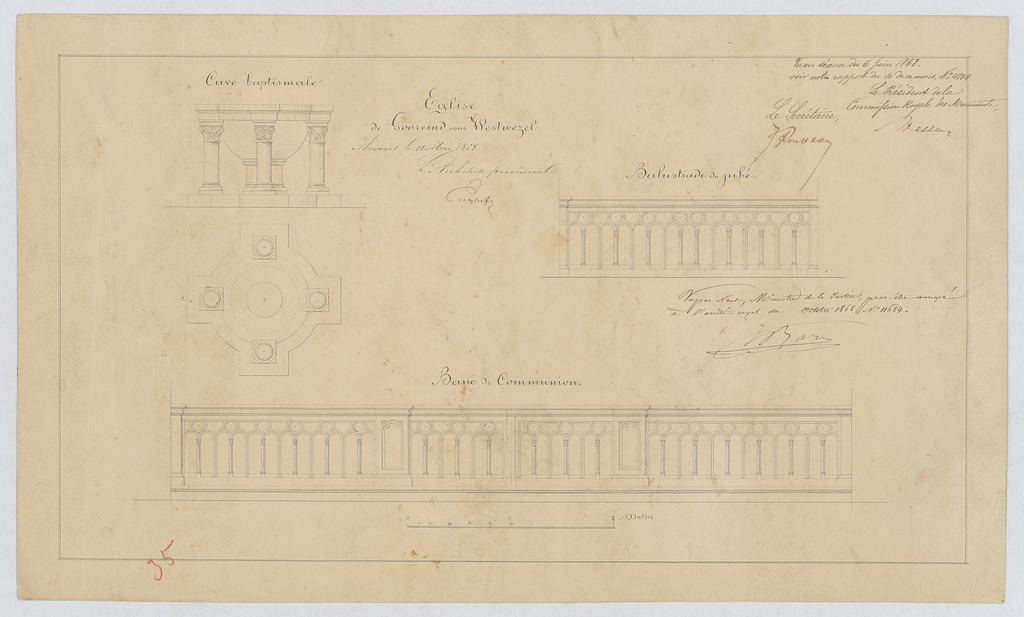 Cuve baptismale
Eglise
de Gooreind sous Westwezel
Anvers, le 11 Mai 1868
L'Architecte provincial
Vu en séance du 6 Juin 1868.
voir notre rapport du 10 de ce mois, N°
Le Président de la
Commission Royale des Monuments,
Le Secrétaire,
Rousseau
Balustrade du jubé.
Vu par Nous, Ministre de la Justice, pour être annexé
à l'arrêté royal du octobre 1868 N° 11689.
Bara
Banc de Communion.
2 Mètres.
35